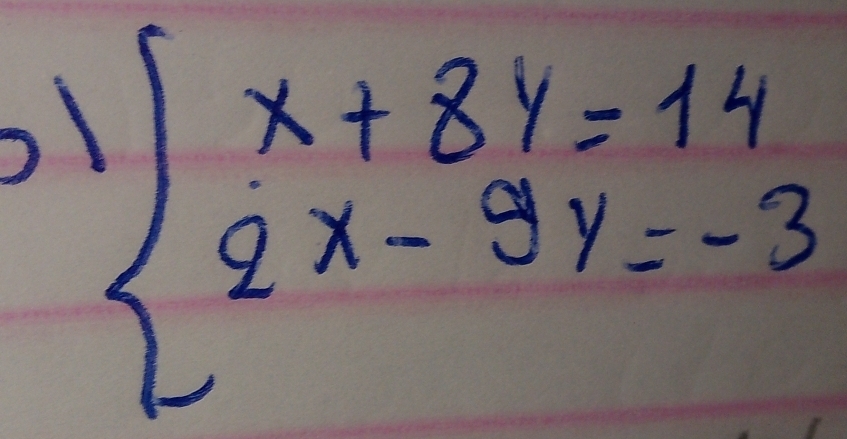 x + 8y = 14
2x - 9y = -3